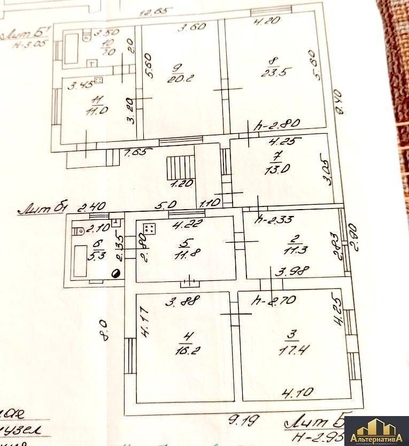 Лит Б'
н-3.05
12.65
3.50
10
7.0
2.0
3.45
11
11.0
3.20
5.60
3.60
9
20.2
4.20
8
23.5
5.60
9.40
h-2.80
7.65
4.25
7
13.0
3.05
1.20
Лит Б1
2.40
5.0
1.10
2.10
6
5.3
2.35
2.80
4.22
5
11.8
h-2.33
2
11.3
2.83
2.90
3.98
8.0
4.17
3.88
4
16.2
h-2.70
3
17.4
4.25
4.10
9.19
Лит Б
н-2.95
узел
Альтернатива